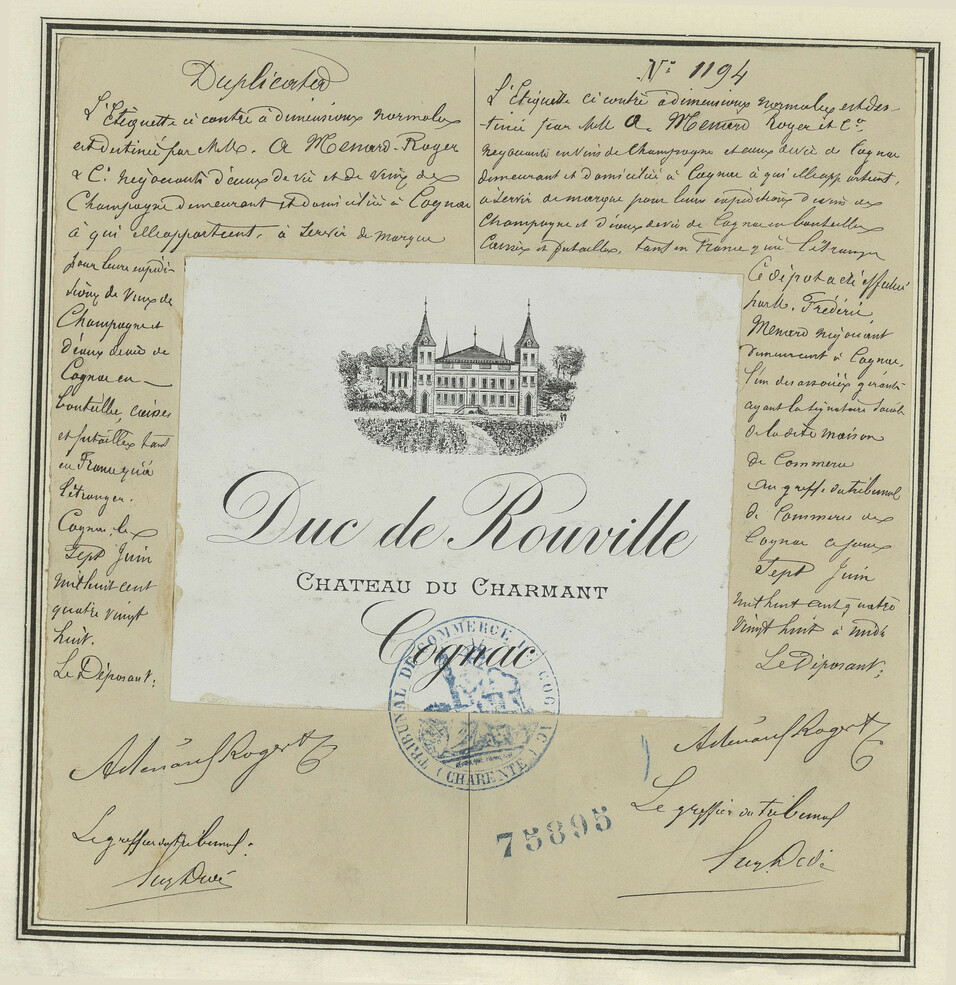 Duplicata
L'Etiquette ci contre à dimensions normales
est destinée par MM. A Menard-Roger
& Cie négociants d'eaux de vie et de vins de
Champagne demeurant et domiciliés à Cognac
à qui elle appartient, à servir de marque
pour leurs expédi-
tions de Vins de
Champagne et
d'eaux de vie de
Cognac en
bouteilles, caisses
et futailles tant
en France qu'à
l'étranger.
Cognac, le
Sept Juin
mil huit cent
quatre vingt
huit.
Le Déposant:
Le greffier du tribunal.
No 1194
L'Etiquette ci contre à dimensions normales est des-
tinée par MM A. Menard Roger et Cie,
négociants en vins de Champagne et eaux de vie de Cognac
demeurant et domiciliés à Cognac à qui elle appartient,
à servir de marque pour leurs expéditions de vins de
Champagne et d'eaux de vie de Cognac en bouteilles
Caisses et futailles, tant en France qu'à l'étranger
Ce dépôt a été effectué
par M. Frédéric
Menard négociant
demeurant à Cognac,
l'un des associés gérants
ayant la signature sociale
de la dite maison
de Commerce
au greffe du tribunal
de Commerce de
Cognac ce jour
Sept Juin
mil huit cent quatre
vingt huit à midi
Le Déposant:
Le greffier du tribunal
Duc de Rouville
CHATEAU DU CHARMANT
Cognac
TRIBUNAL DE COMMERCE DE COGNAC
(CHARENTE)
75895